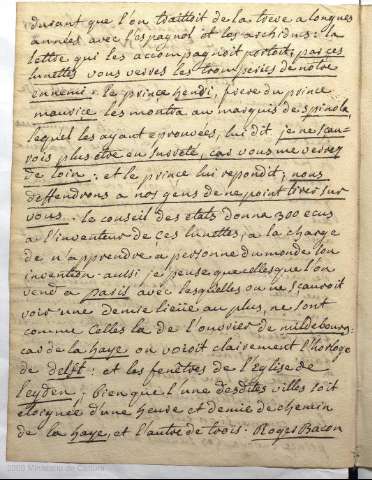 durant que l'on traittoit de la treve a longues
années avec l'espagnol et les archiducs: la
lettre qui les accompagnoit portoit, par ces
lunettes vous verres les tromperies de notre
ennemi. le prince henri, frere du prince
maurice les montra au marquis de spinola,
lequel les ayant eprouvées, lui dit je ne scau-
rois plus être en sureté, car vous me verrez
de loin: et le prince lui repondit; nous
deffendrons a nos gens de ne point tirer sur
vous. le conseil des etats donna 300 ecus
a l'inventeur de ces lunettes, a la charge
de n'apprendre a personne du monde son
invention. aussi je pense que celles que l'on
vend a paris avec lesquelles on ne scauroit
voir une demie lieüe au plus, ne sont
comme celles la de l'ouvrier de mildebourg
car de la haye on voioit clairement l'horloge
de delft: et les fenêtres de l'église de
leyden; bien que l'une desdites villes soit
eloignée d'une heure et demie de chemin
de la haye, et l'autre de trois. Roger Bacon
2009 Ministerio de Cultura